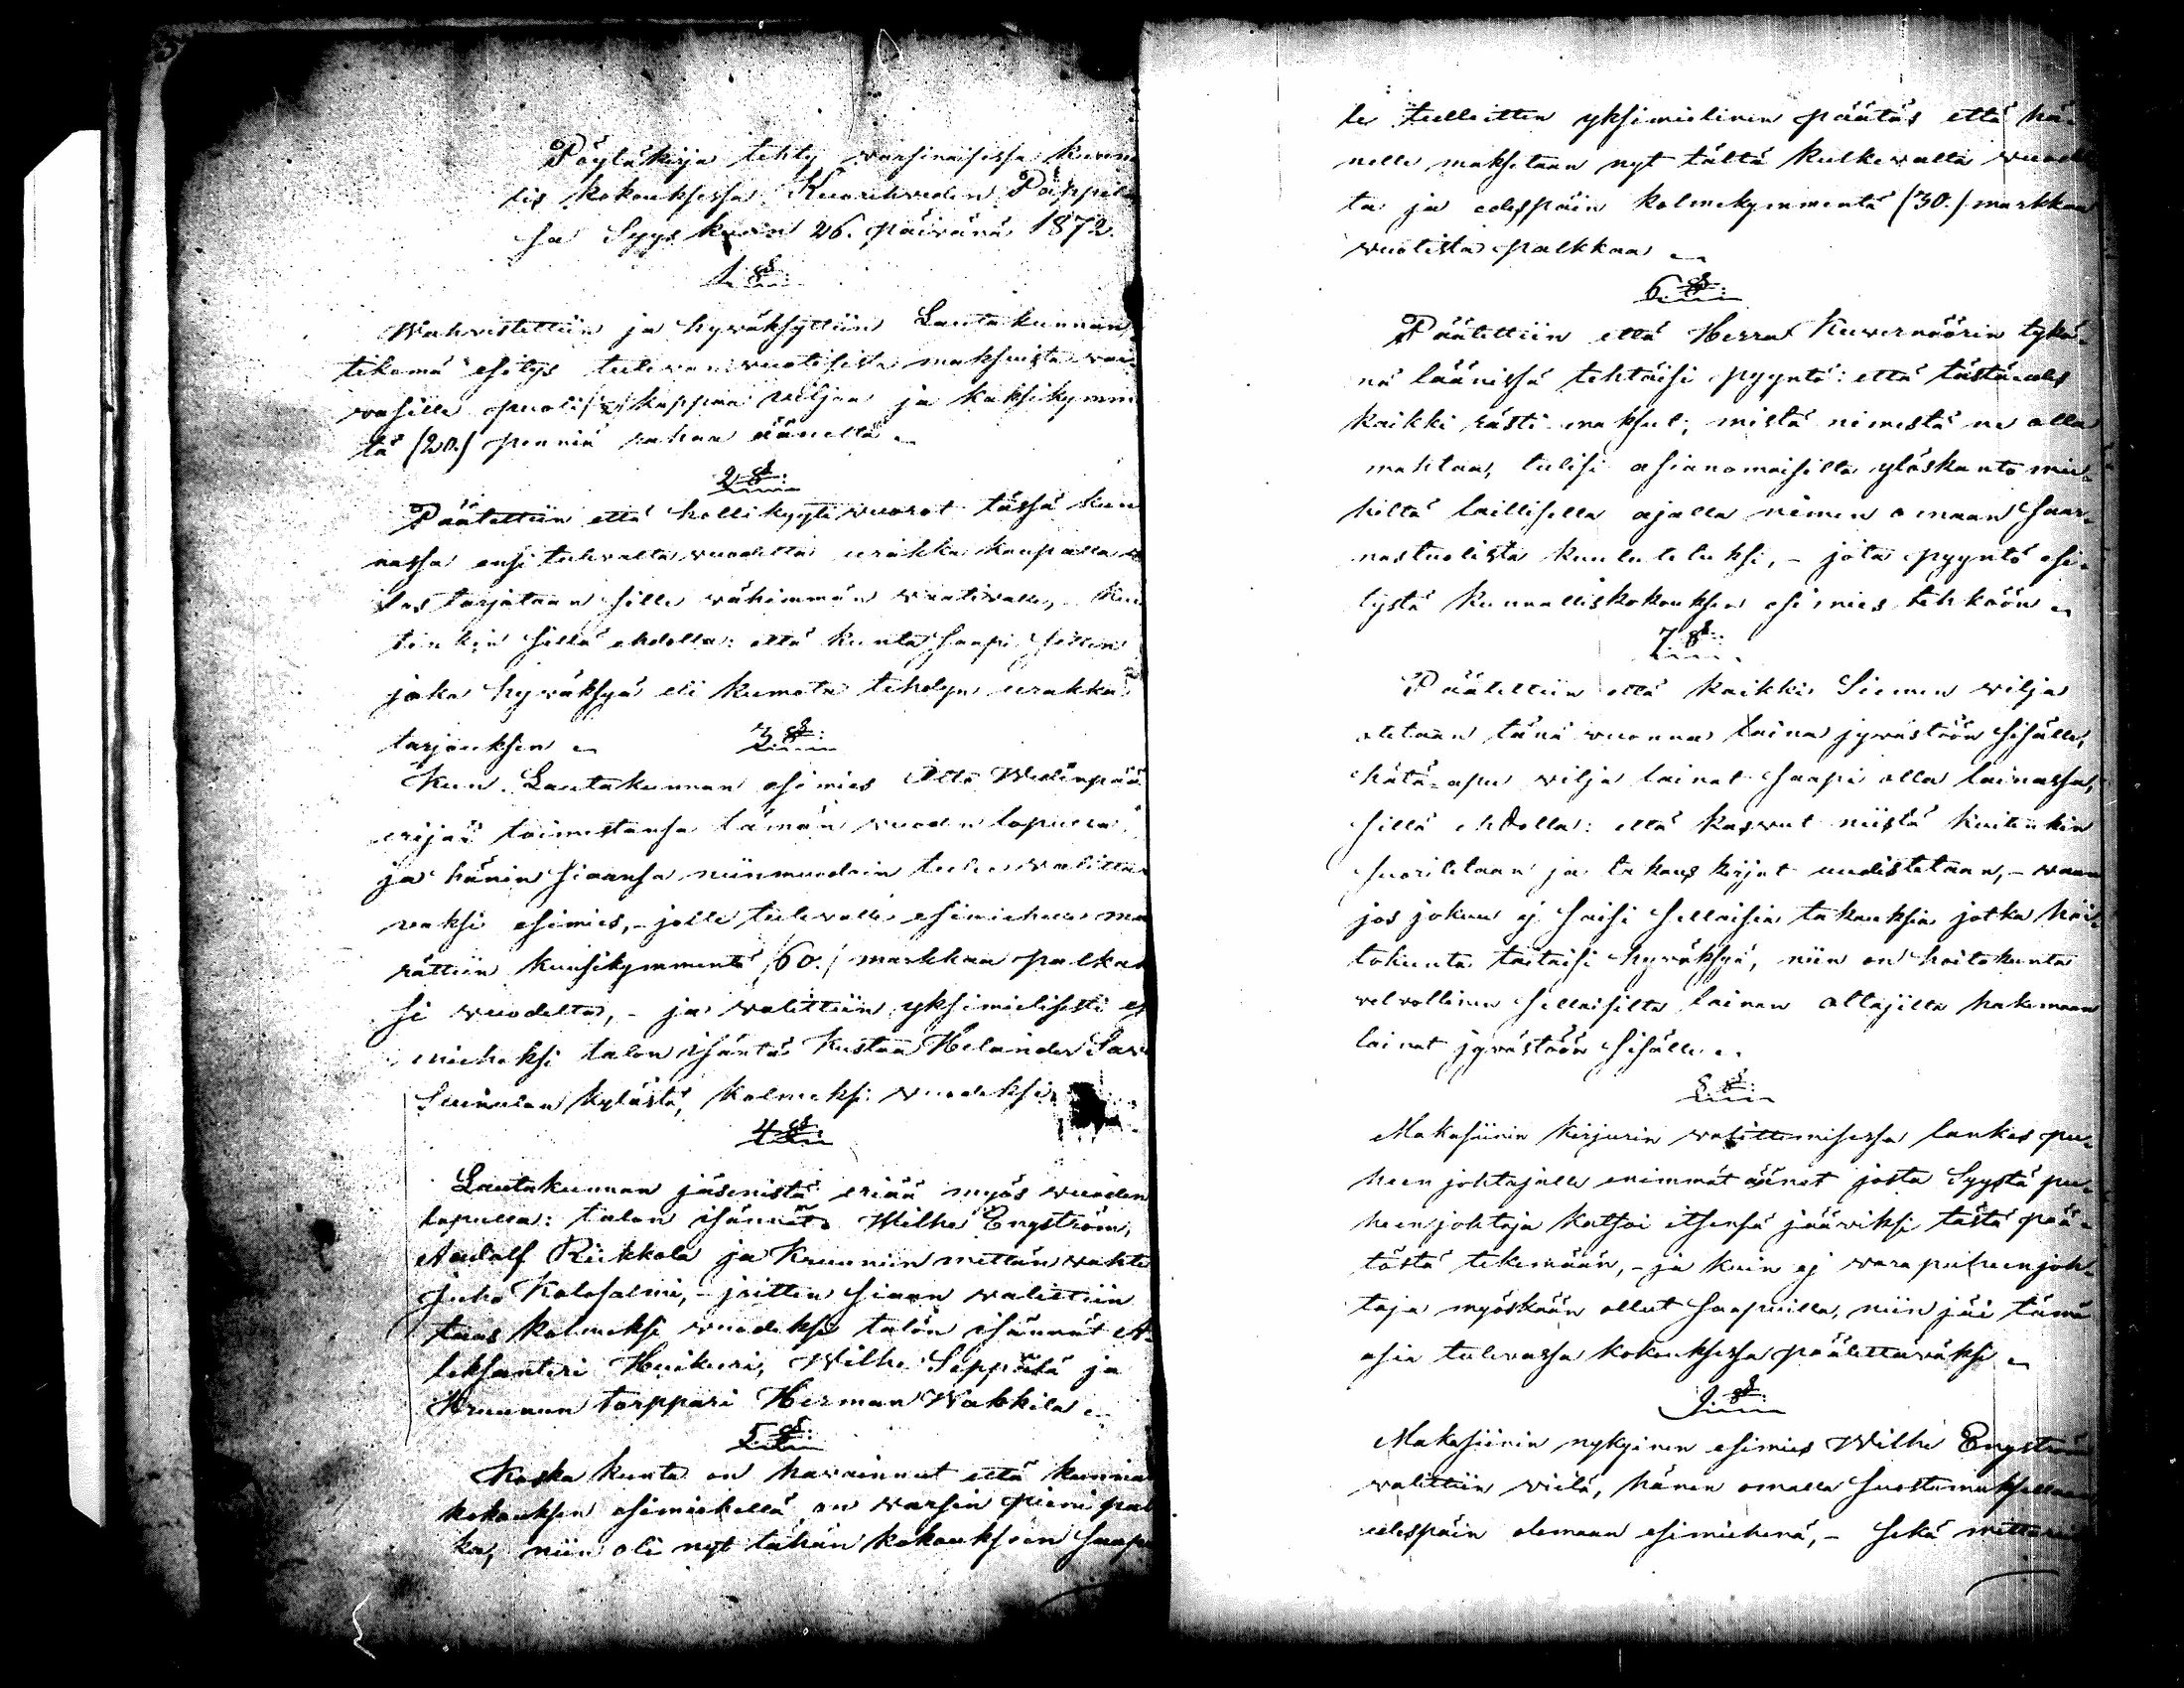 Pöytäkirja tehty warsinaisessa kunna
lis kokouksessa Kuoreweden Pappila
sa Syys kuun 26. päiwänä 1872.
1 §:
Wahwistettiin ja hywäksyttiin Lautakunnan
tekemä esitys tulewan wuotisista maksuista wai-
wasille puoli kappaa wiljaa ja kaksikymm
tä (20.) penniä rahaa ääneltä.
2 §:
Päätettiin että hollikyyti wuorot tässä kun
nassa ensi tulewalta wuodelta urakka kaupalla
las tarjotaan sille wähimmän waatiwalle, kui
tenkin sillä ehdolla: että kunta saapi sitten
joka hywäksyä eli kumota tehdyn urakka
tarjouksen
3 §:
Kun Lautakunnan esimies Otto Wedänpää
erijää toimestansa tämän wuoden lopulla,
ja hänen siaansa niinmuodoin tulee walitta
waksi esimies, - jolle tulewalle esimiehelle mä
rättiin kuusikymmentä /60./ markkaa palkak
si wuodelta, - ja walittiin yksimielisesti es
miheksi talon isäntä Kustaa Helander Sawi
Suinulan kylästä, kolmeksi wuodeksi.
4 §:
Lautakunnan jäsenistä eriää myös wuoden
lopulla: talon isännät Wilhe Engström,
Aadolf Riikkola ja Kruunun mettän wahti
Juho Kolosalmi, - joitten siaan walittiin
taas kolmeksi wuodeksi talon isännät A-
leksanteri Huikuri, Wilhe Seppälä ja
Kruunun torppari Herman Wahkila
5 §:
Koska kunta on hawainnut että kunnan
kokouksen esimiehellä on warsin pieni pal
ka, niin oli nyt tähän kokoukseen saapu
le tulleitten yksimielinen päätös että hä-
nelle maksetaan nyt tältä kulkewalta wuode
ta ja edespäin kolmekymmentä (30.) markkaa
wuotista palkkaa
6 §:
Päätettiin että Herra Kuwernöörin tykö-
nä läänissä tehtäisi pyyntö: että tästäedes
kaikki rästi maksut, mistä nimestä ne olla
mahtaa, tulisi asianomaisilta ylöskanto mie-
hiltä laillisella ajalla nimen omaan saar-
nastuolista kuulutetuksi, - jota pyyntö esi-
tystä kunnalliskokouksen esimies tehköön
7 §:
Päätettiin että kaikki Siemen wilja
otetaan tänä wuonna laina jywästöön sisälle,
hätä-apu wilja lainat saapi olla lainassa,
sillä ehdolla: että kaswut niistä kuitenkin
suoritetaan ja takaus kirjat uudistetaan, - waan
jos jokuu ej saisi sellaisia takauksia jotka hoi-
tokunta taitaisi hywäksyä, niin on hoitokunta
welwollinen sellaisilta lainan ottajilta hakemaan
lainat jywästöön sisälle.
8 §:
Makasiinin kirjurin walittemisessa lankes pu-
heen johtajalle enimmät äänet josta Syystä pu-
heenjohtaja katsoi itsensä jääwiksi tästä pää-
töstä tekemään, - ja kuin ej warapuheenjoh-
taja myöskään ollut saapuilla, niin jäi tämä
asia tulewassa kokouksessa päätettäwäksi
9 §:
Makasiinin nykyinen esimies Wilhe Engström
walittiin wielä, hänen omalla suostumuksellaan
edespäin olemaan esimiehenä, - sekä mittari